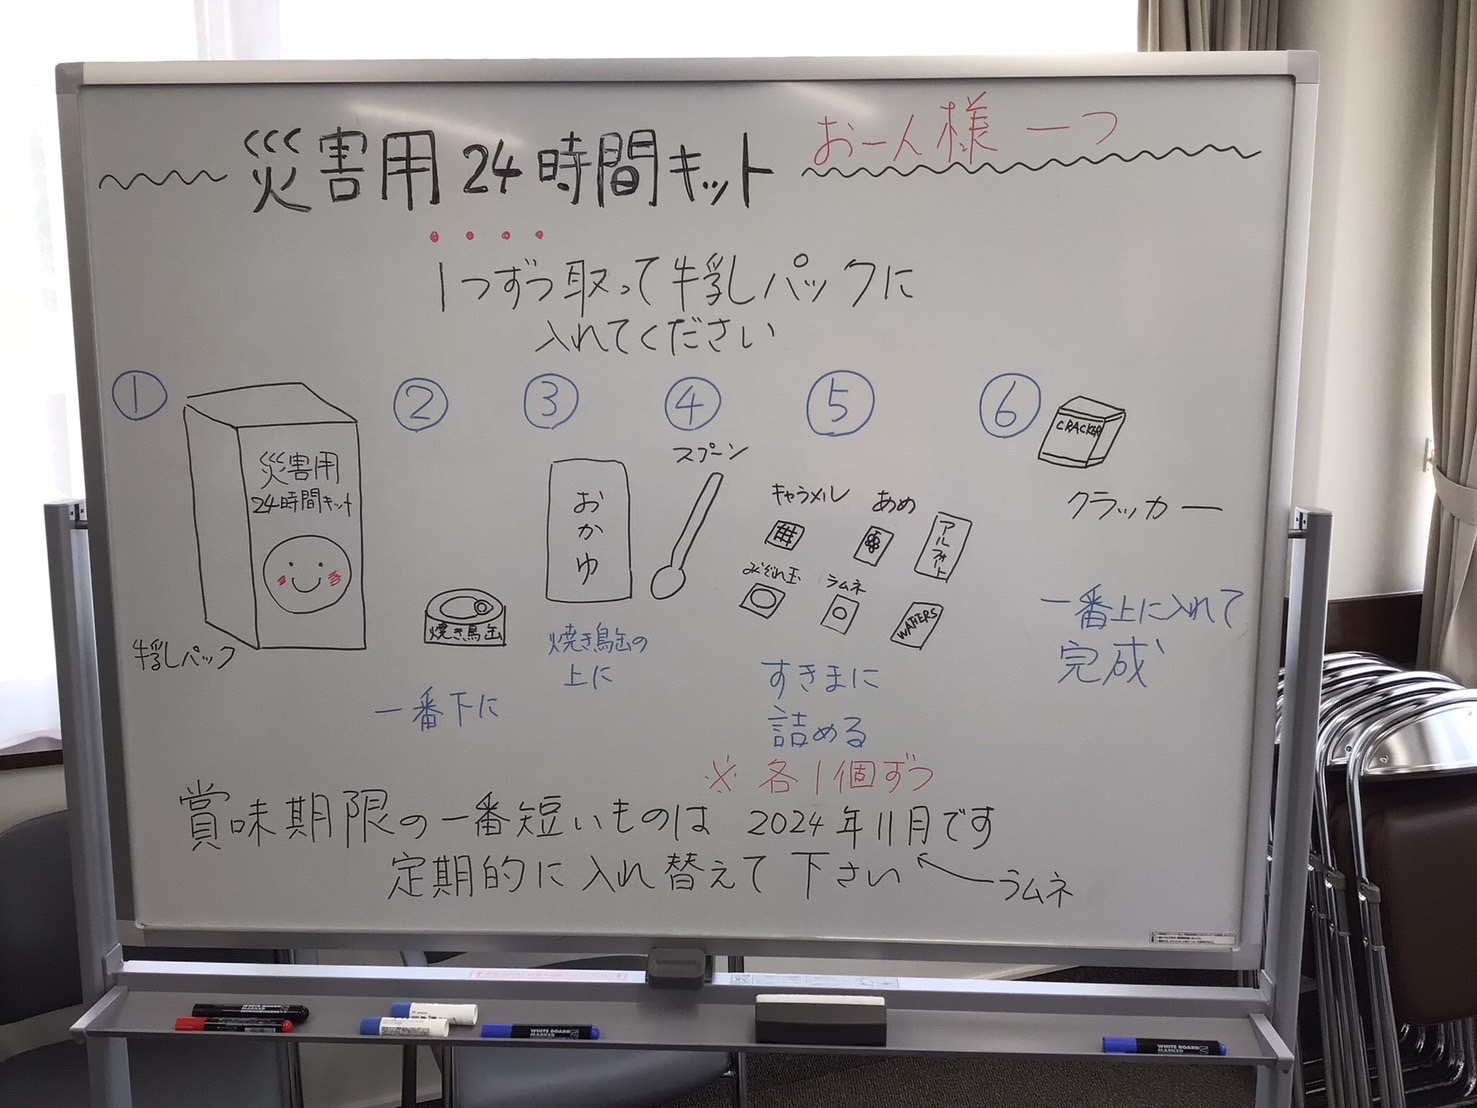 災害用24時間キット
お一人様一つ
1つずつ取って牛乳パックに
入れてください
①
災害用
24時間キット
牛乳パック
②
焼き鳥缶
一番下に
③
おかゆ
焼き鳥缶の
上に
④
スプーン
⑤
キャラメル
あめ
アルフォート
みぞれ玉
ラムネ
WAFERS
すきまに
詰める
※各1個ずつ
⑥
CRACKER
クラッカー
一番上に入れて
完成
賞味期限の一番短いものは 2024年11月です
定期的に入れ替えて下さい
ラムネ
WHITE BOARD MARKER
WHITE BOARD MARKER
WHITE BOARD MARKER